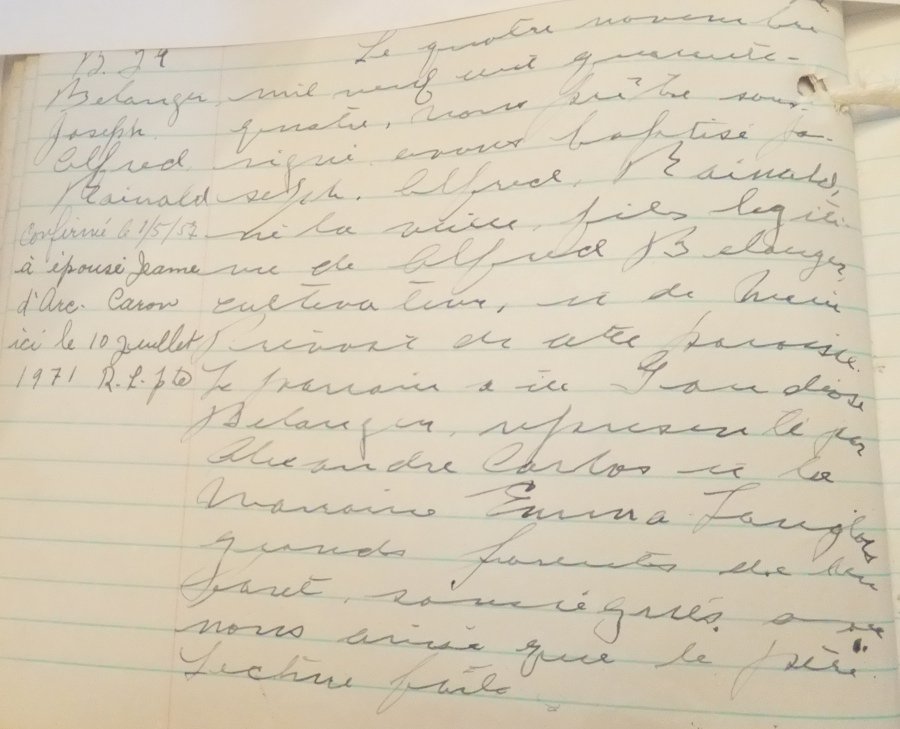 B. 79
Belanger
Joseph
Alfred
Rainald
Confirmé le 1/5/57
à épousé Jeanne
d'Arc. Caron
ici le 10 Juillet
1971 R.L. ptre
Le quatre novembre
mil neuf cent quarante-
quatre, nous prêtre sous-
signé avons baptisé Jo-
seph, Alfred, Rainald,
né la veille, fils légiti-
me de Alfred Belanger,
cultivateur, et de
Prévost de cette paroisse.
Le parrain a été
Belanger, représenté par
Alexandre Carlos et la
marraine Emma Langlois
grands parents de l'en
fant, soussignés avec
nous ainsi que le père.
Lecture faite